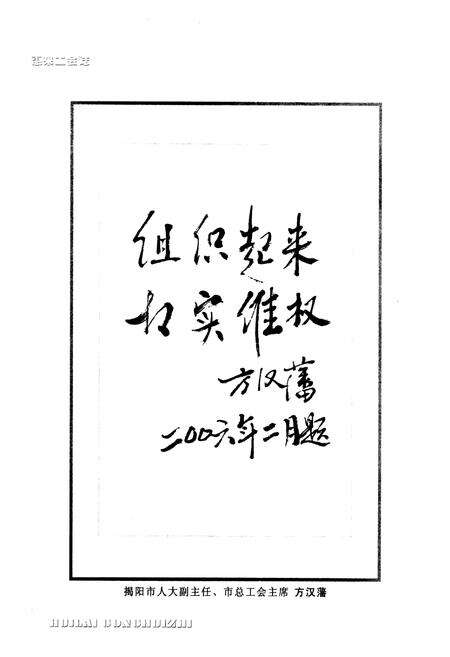 惠来工会志
组织起来
切实维权
方汉藩
二00六年二月题
揭阳市人大副主任、市总工会主席 方汉藩
HUILAI GONGHUIZHI